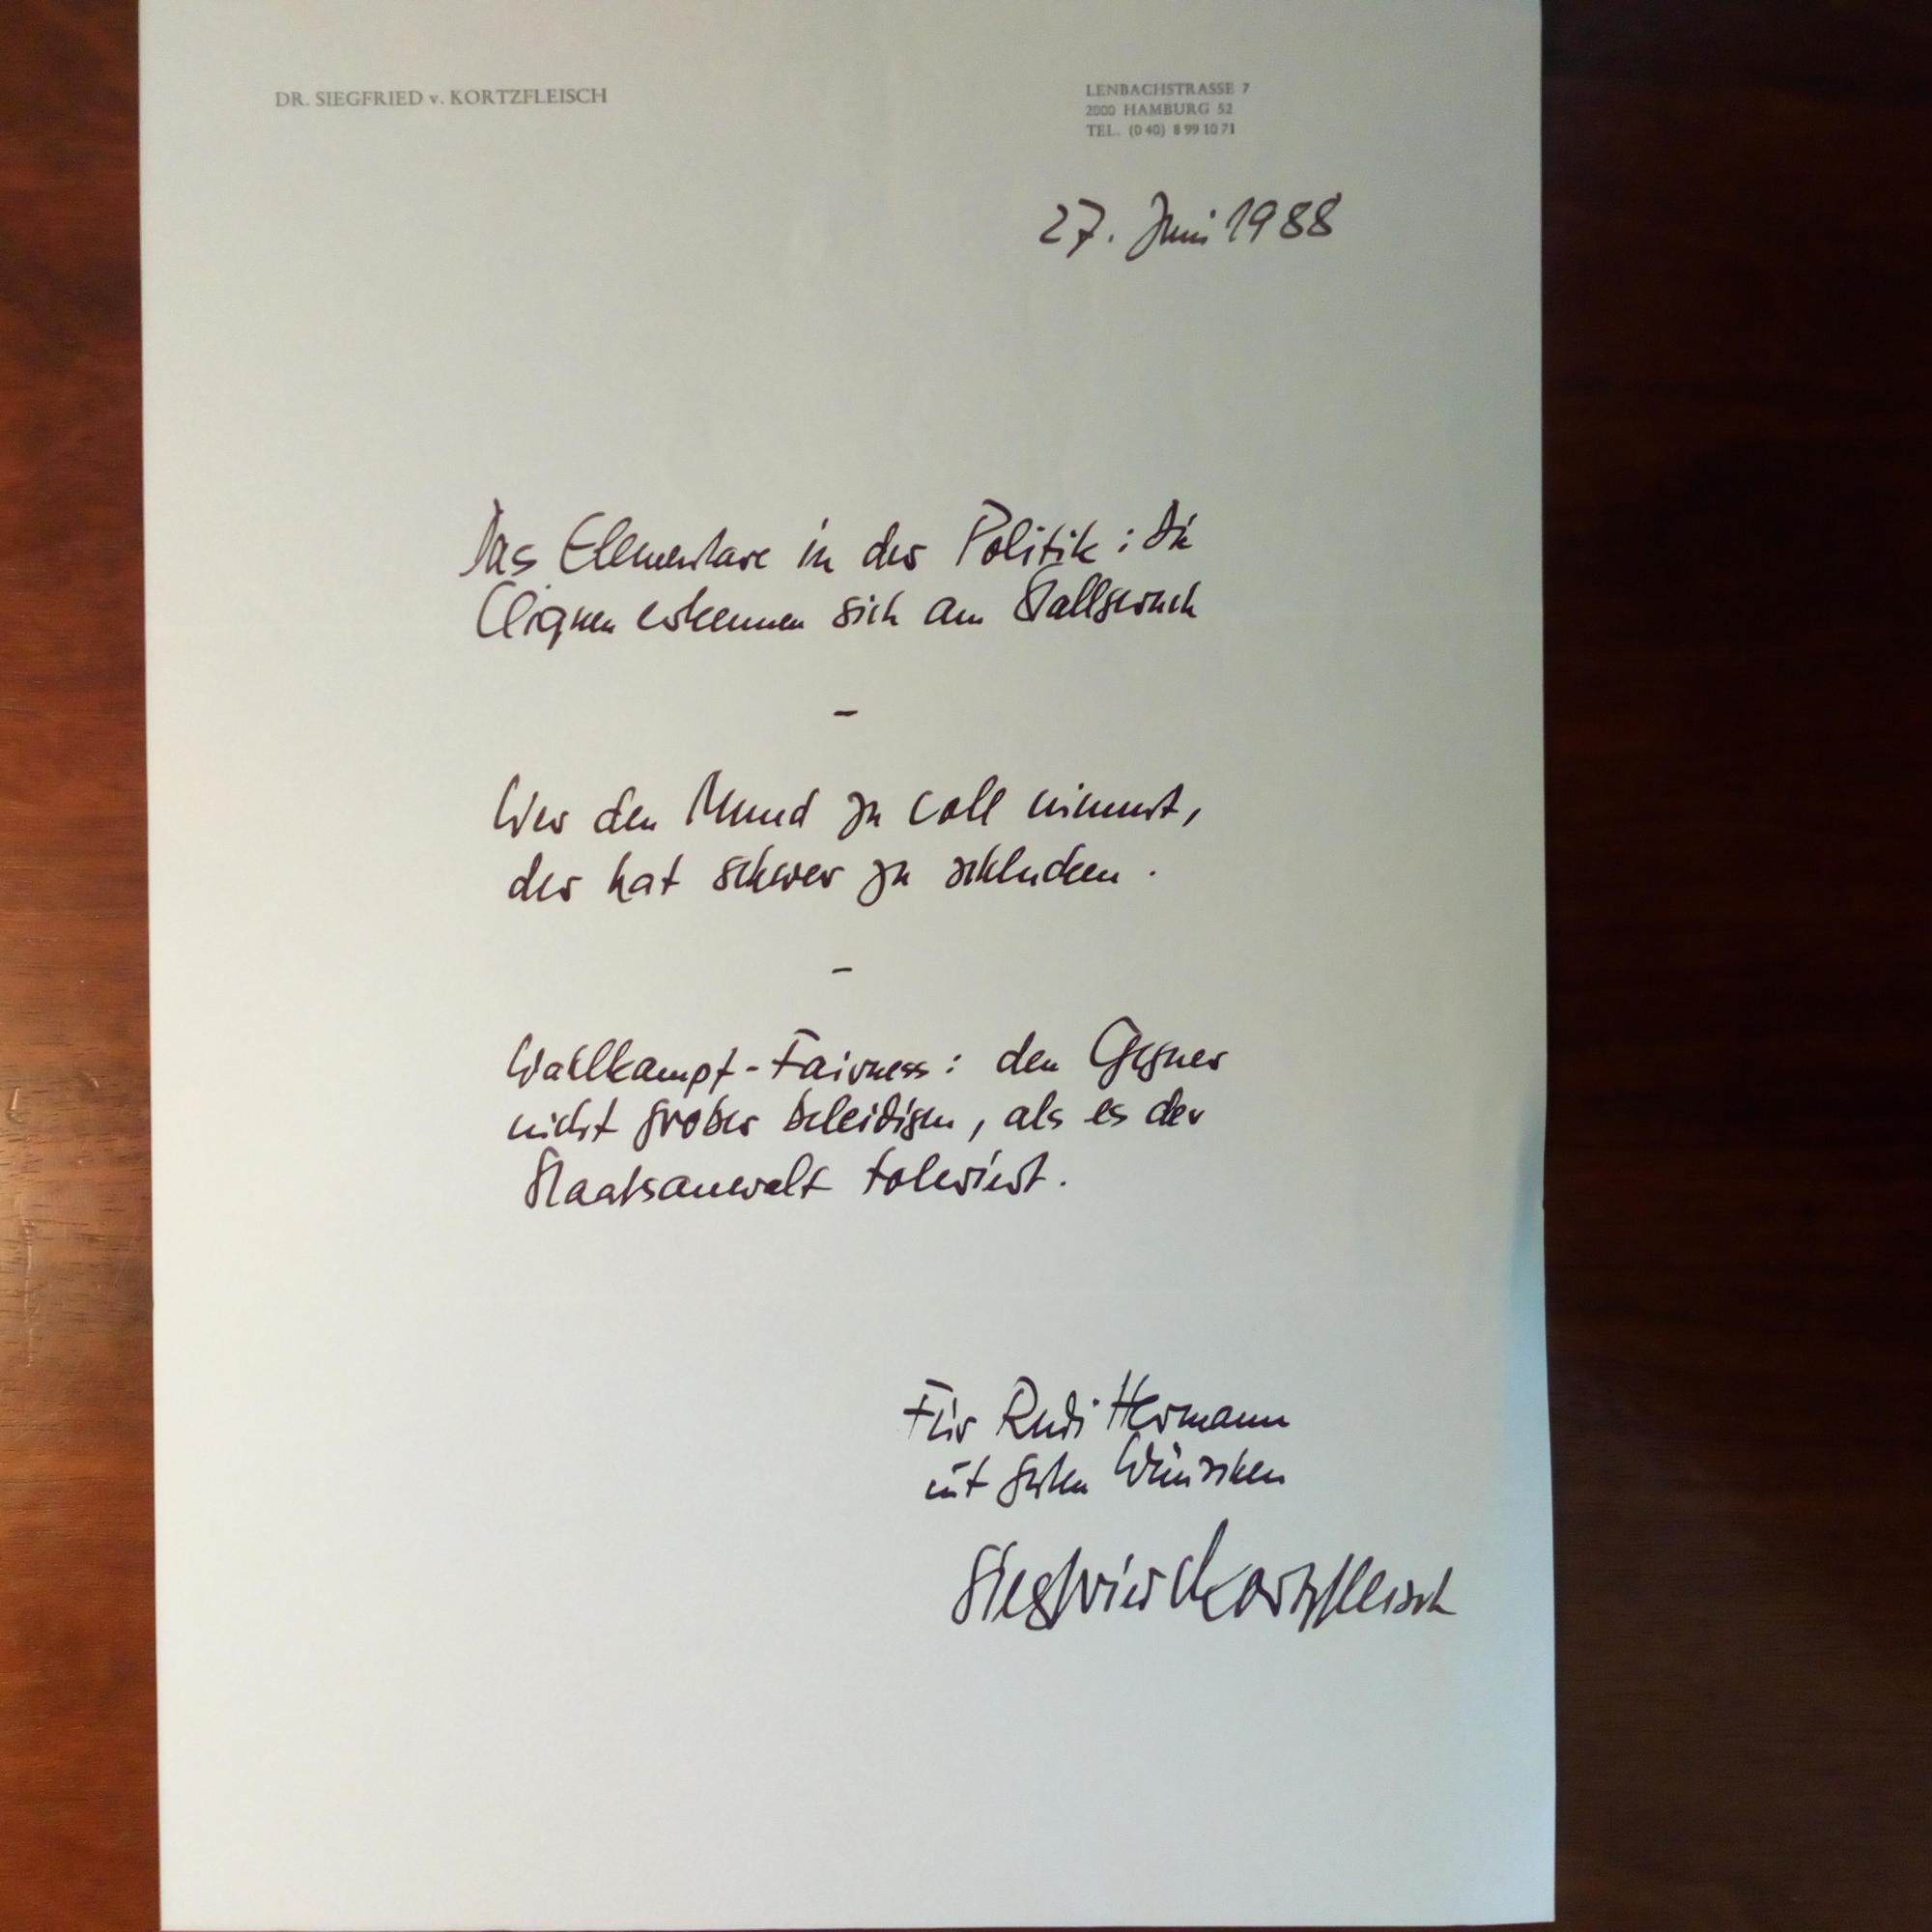 DR. SIEGFRIED v. KORTZFLEISCH
LENBACHSTRASSE 7
2000 HAMBURG 52
TEL. (0 40) 8 99 10 71
27. Juni 1988
Das Elementare in der Politik: Die
Cliquen erkennen sich am Stallgeruch
–
Wer den Mund zu voll nimmt,
der hat schwer zu schlucken.
–
Wahlkampf-Fairness: den Gegner
nicht grober beleidigen, als es der
Staatsanwalt toleriert.
Für Rudi Hermann
mit guten Wünschen
Siegfried Kortzfleisch